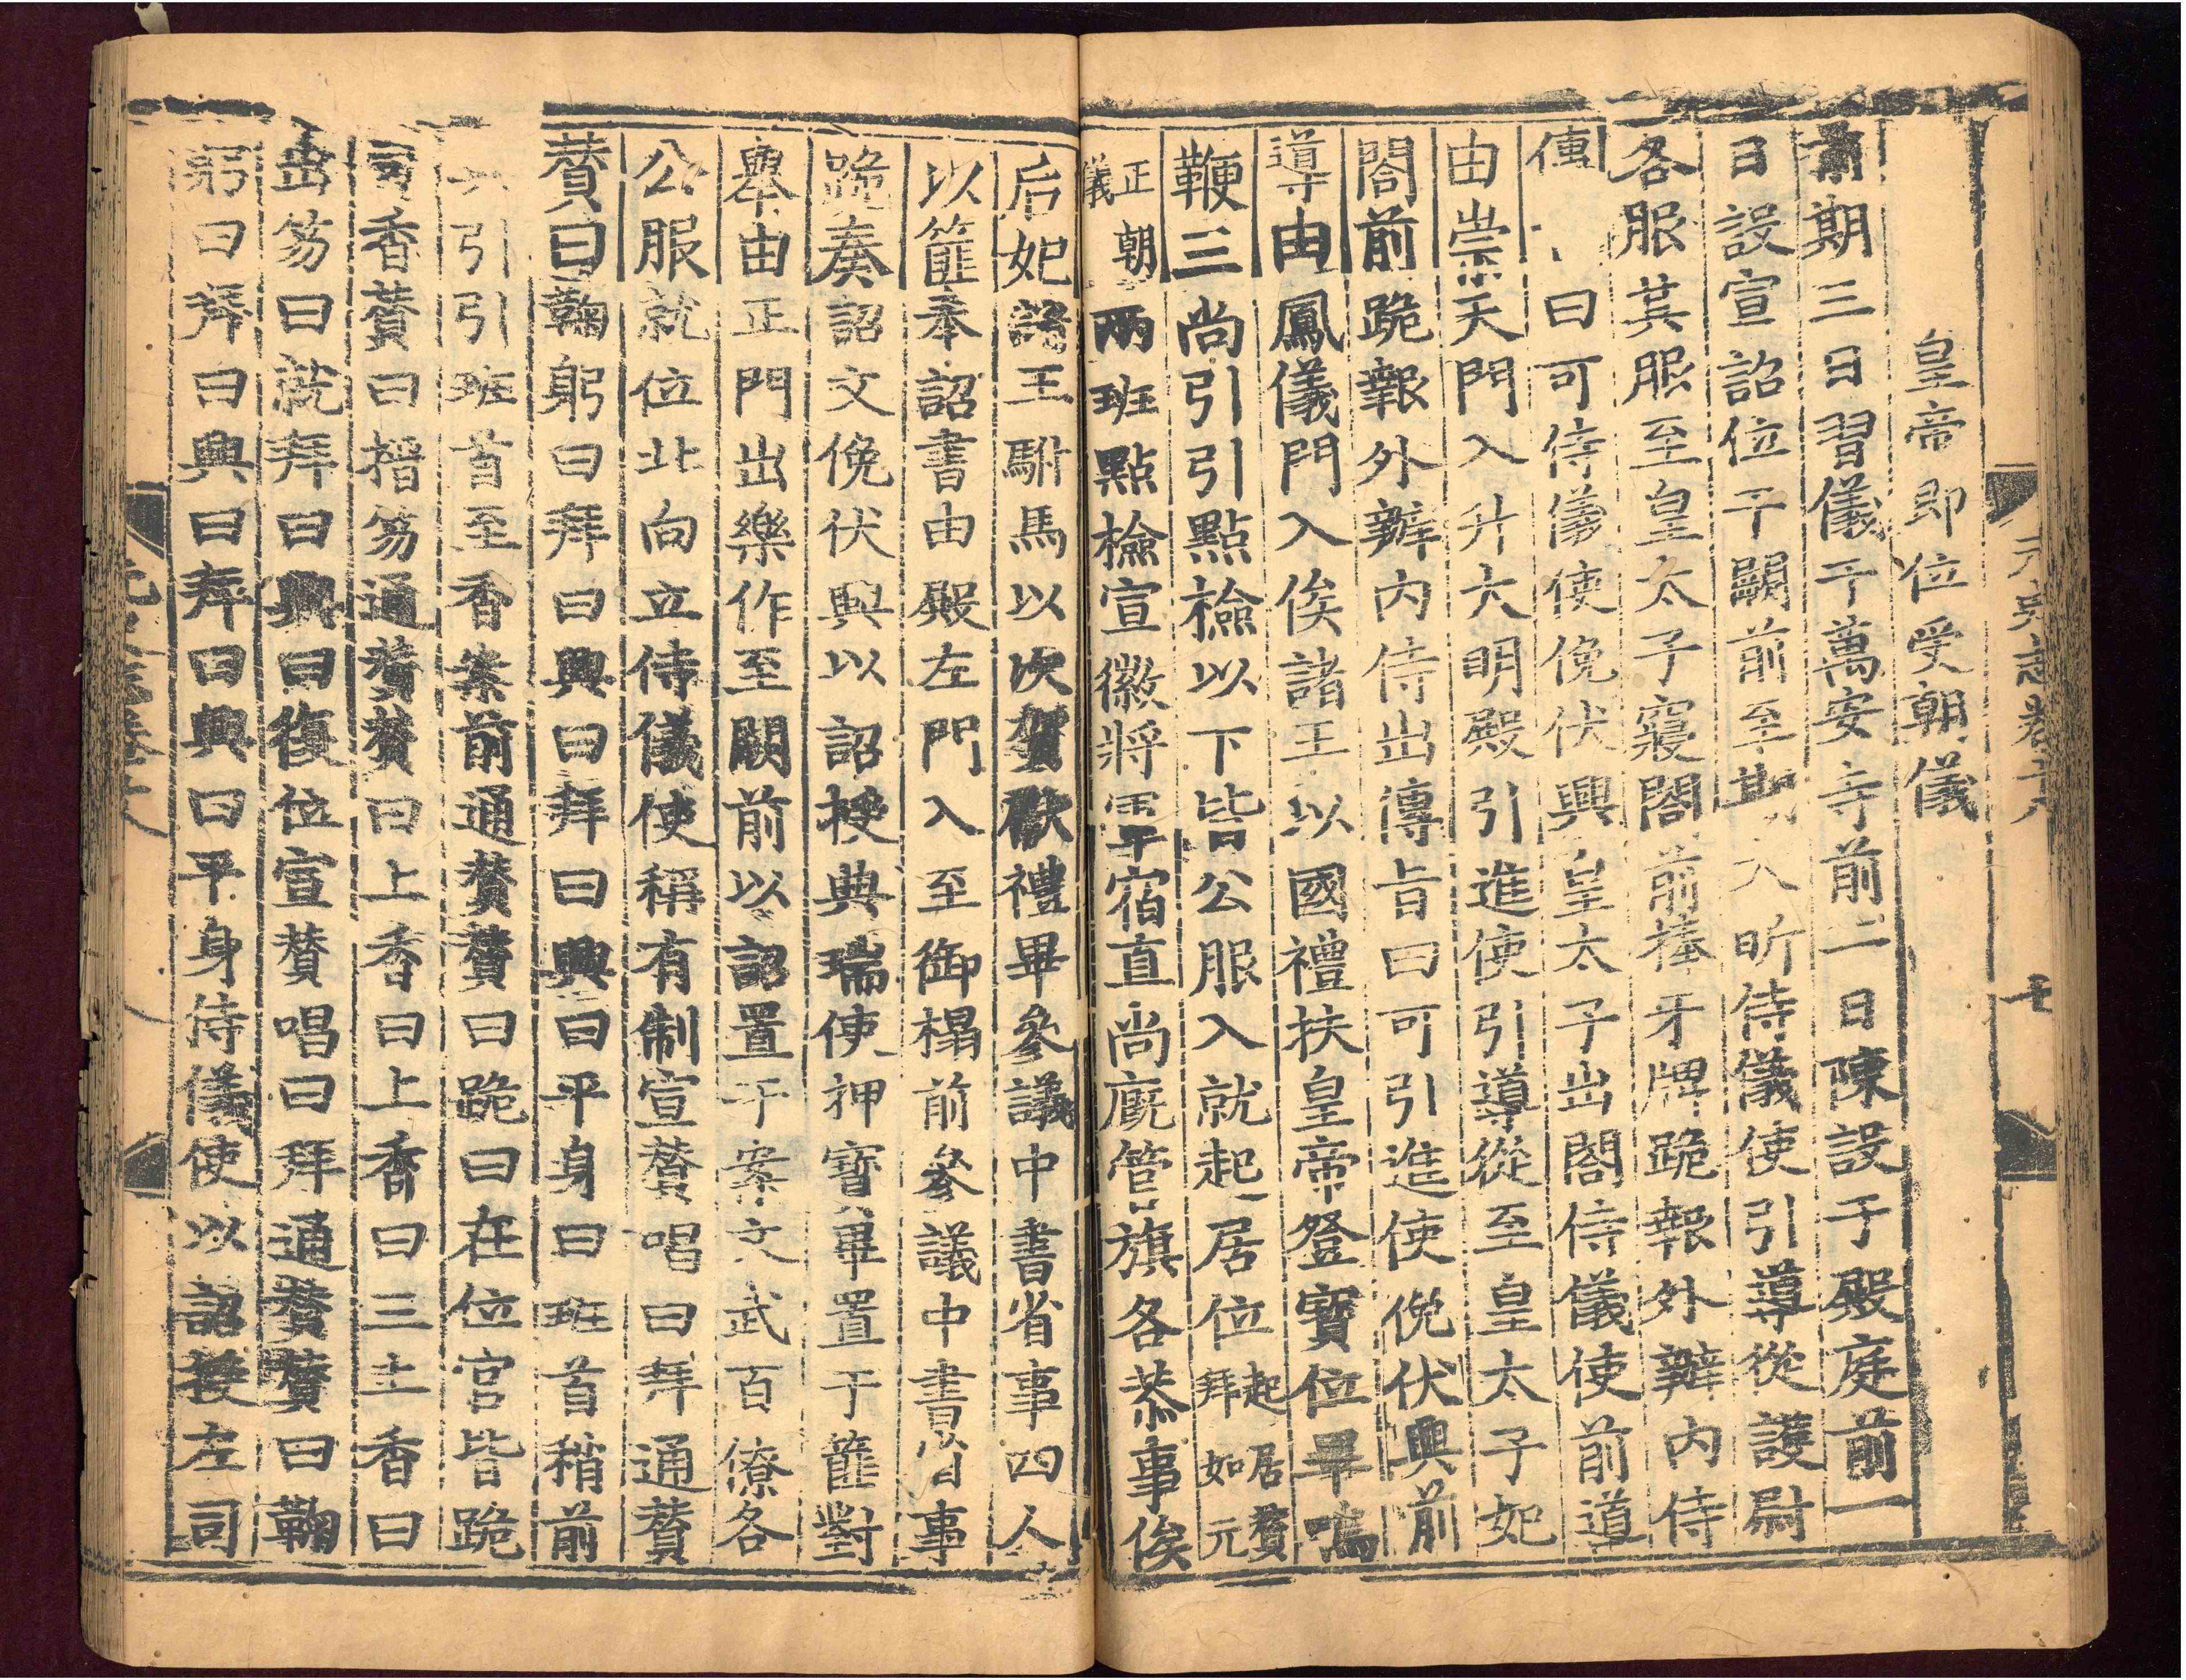 皇帝即位受朝儀
前期三日習儀于萬安寺前二日陳設于殿庭前一
日設宣詔位于闕前至期大昕侍儀使引導從護尉
各服其服至皇太子寢閤前捧牙牌跪報外辦內侍
傳曰可侍儀使俛伏興皇太子出閤侍儀使前導
由崇天門入升大明殿引進使引導從至皇太子妃
閤前跪報外辦內侍出傳旨曰可引進使俛伏興前
導由鳳儀門入俟諸王以國禮扶皇帝登寶位畢鳴
鞭三尚引引點檢以下皆公服入就起居位起居贊拜如元
正朝儀兩班點檢宣徽將軍宿直尚廄管旗各恭事俟
后妃諸王駙馬以次賀獻禮畢參議中書省事四人
以篚奉詔書由殿左門入至御榻前參議中書省事
跪奏詔文俛伏興以詔授典瑞使押寶畢置于篚對
舉由正門出樂作至闕前以詔置于案文武百僚各
公服就位北向立侍儀使稱有制宣贊唱曰拜通贊
贊曰鞠躬曰拜曰興曰拜曰興曰平身曰班首稍前
引引班首至香案前通贊贊曰跪曰在位官皆跪
司香贊曰搢笏通贊贊曰上香曰上香曰三上香曰
出笏曰就拜曰興曰復位宣贊唱曰拜通贊贊曰鞠
躬曰拜曰興曰拜曰興曰平身侍儀使以詔授左司